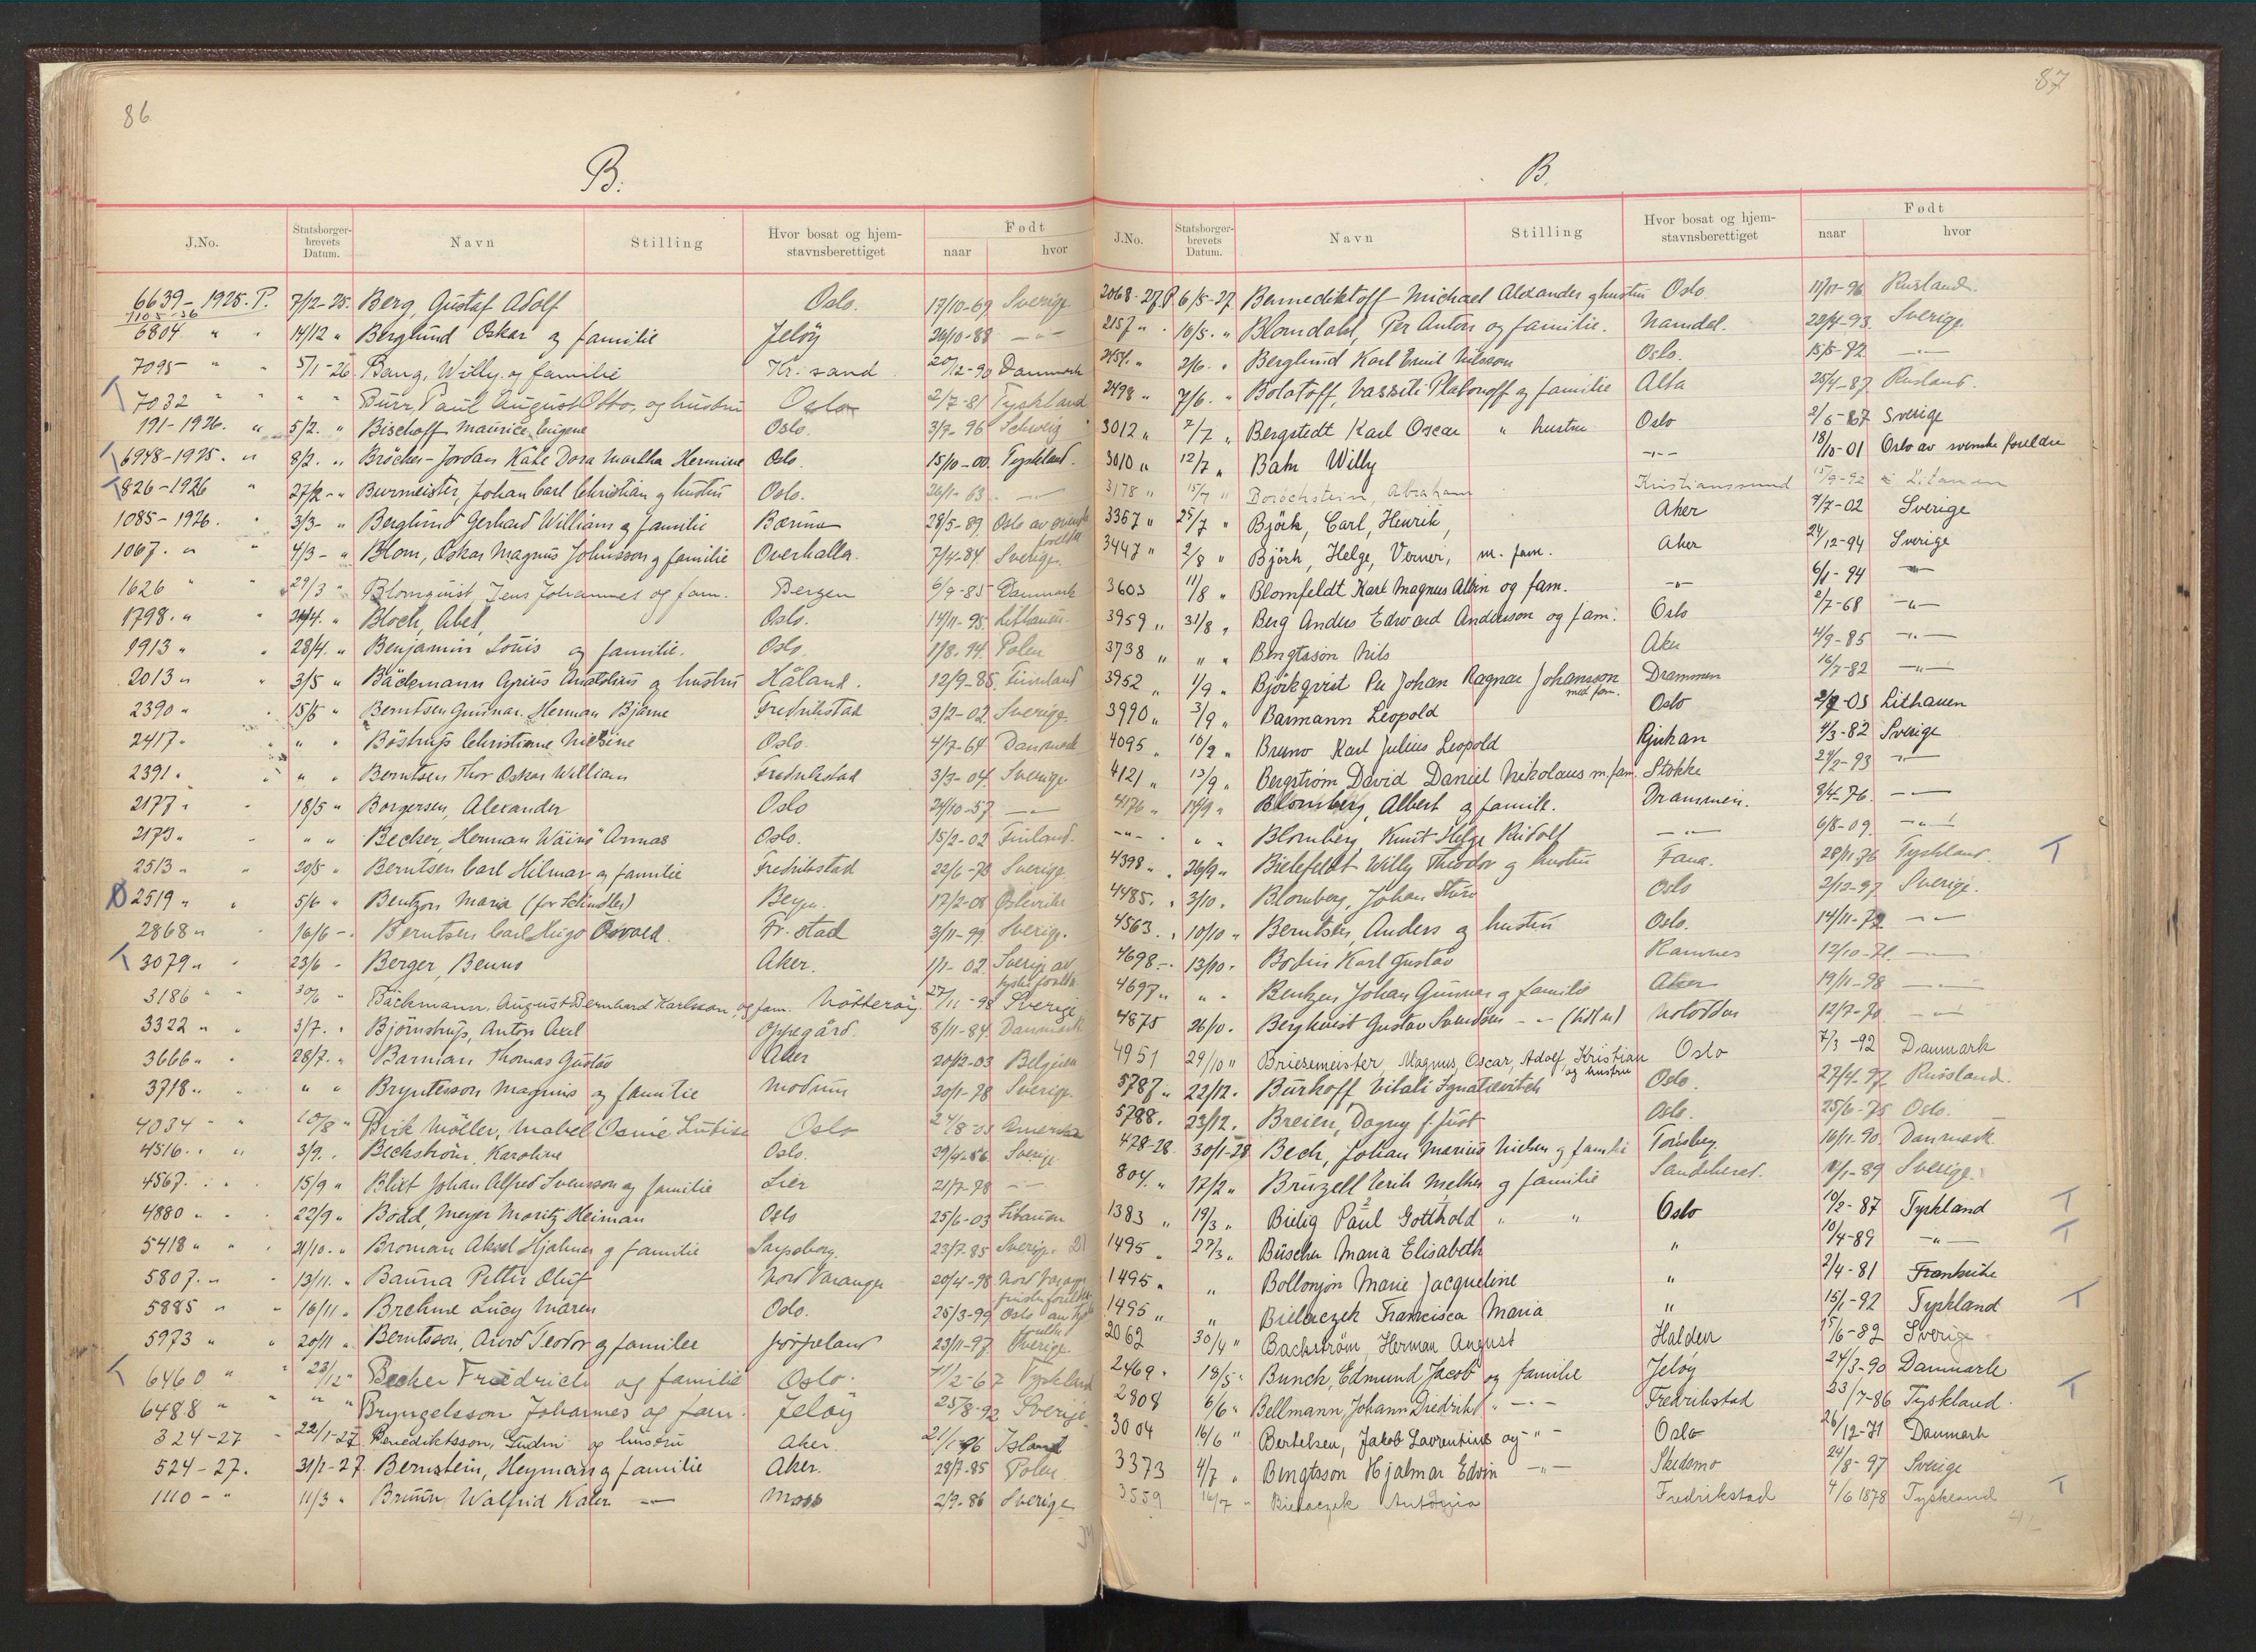 86
B.
J.No. Statsborger-brevets Datum. Navn Stilling Hvor bosat og hjem-stavnsberettiget Født naar hvor
6639-1925. P. 7/12-25. Berg, Gustaf Adolf Oslo. 13/10-69 Sverige
1105-36
6804 " " 14/12 " Berglund Oskar og familie Jeløy 26/10-88 —"—
7095 - " " 5/1-26. Bang, Willy og familie Kr.sand 20/12-90 Danmark
T 7032 " " " " Burr, Paul August Otto, og hustru Oslo 2/7-81 Tyskland
191-1926. " 5/2. " Bischoff Maurice Eugene Oslo. 3/7-96 Schweiz
T 6948-1925. " 8/2. " Bröcker-Jordan Käte Dora Martha Hermine Oslo. 15/10-00. Tyskland.
T 826-1926 " 27/2-" Burmeister, Johan Carl Christian og hustru Oslo. 26/1-63. —"—
1085-1926. " 3/3- " Berglund Gerhard William og familie Bærum 28/5-89. Oslo av svenske foreldre
1067. " " 4/3- " Blom, Oskar Magnus Johnsson og familie Overhalla. 7/4-84. Sverige.
1626 " " 29/3 " Blomquist Jens Johannes og fam. Bergen 6/9-85 Danmark
1798. " 24/4. " Bloch, Abel Oslo. 14/11-95. Lithauen.
1913 " " 28/4. " Benjamin Louis og familie. Oslo. 1/8.94. Polen
2013 " " 3/5 " Bäckmann Cyrius Anatolius og hustru Håland. 12/9-85. Finnland
2390 " " 15/5 " Berntsen Gunnar Herman Bjarne Fredrikstad 3/2-02 Sverige.
2417 " " " " Böstrup Christiane Nielsine Oslo. 4/7-64 Danmark
2391 " " " " Berntsen Thor Oskar William Fredrikstad 3/3-04. Sverige.
2177 " " 18/5 " Borgersen, Alexander Oslo 24/10-57 —"—
2173 " " " " Becker, Herman Wäinö Armas Oslo. 15/2-02 Finland.
2513 " " 20/5 " Berntsen Carl Hilmar og familie Fredrikstad 22/6-78 Sverige.
2519 " " 5/6 " Bentzon Maria (før Schindler) Bergen. 17/2-08 Østerrike
2868 " " 16/6 - " Berntsen Carl Hugo Osvald Fr.stad 3/11-99 Sverige.
T 3079 " " 23/6 - Berger, Benno Aker. 1/1-02. Sverige av tyske foreldre
3186 " " 30/6 " Bäckmann, August Bernhard Karlsson, og fam. Nötteröy. 27/11-98 Sverige
3322 " " 3/7. " Björnstrup, Anton Axel Oppegård. 8/11-84. Danmark
3666 " " 28/7. " Barman Thomas Gustav Aker 20/12-03 Belgien
3718 " " " " Bryntesson Magnus og familie Modum 20/1-78 Sverige.
4034 " " 10/8 " Birk Möller, Mabel Osnie Lutise Oslo 24/8-03 Amerika
4516. " " 3/9. " Beckström, Karoline Oslo. 29/4-56 Sverige.
4567. " " 15/9 " Blixt Johan Alfred Svensson og familie Lier 21/7-78 —"—
4880 " " 22/9 " Bodd, Meyer Moritz Heiman Oslo 25/6-03 Litauen
5418 " " 21/10. " Broman Aksel Hjalmar og familie Sarpsborg. 23/7.85 Sverige
5807. " " 13/11. " Banna Petter Oluf Nord Varanger 20/4-98 Nord Varanger finske foreldre.
5885 " " 16/11 " Brehme Lucy Maren Oslo. 25/3-99 Oslo av tyske foreldre
5973 " " 20/11 " Berntsson, Arvid Teodor og familie Jørpeland 23/11-97 Sverige
T 6460 " " 23/12 " Becker Friedrich og familie Oslo. 11/2-67 Tyskland
6488 " " " " Bryngelsson Johannes og fam. Jeløy 25/8-92 Sverige
324-27 - 22/1-27. Benediktsson, Gudni og hustru Aker. 21/1-96 Island
524-27. 31/1-27. Bernstein, Heyman og familie Aker. 28/7-85 Polen
1110 - " 11/3 " Brunn, Walfrid Kaler —"— Moss 2/9-86 Sverige
87
B.
J.No. Statsborger-brevets Datum. Navn Stilling Hvor bosat og hjem-stavnsberettiget Født naar hvor
2068-27.P 6/5-27 Bernediktoff Michael Alexander og hustru Oslo 11/11-96 Rusland.
2157 " " 10/5. " Blomdahl, Per Anton og familie. Namdal. 22/4-93. Sverige.
2454. " 2/6. " Berglund Karl Emil Nilsson Oslo. 15/5-72 —"—
2498 " 7/6. " Bolotoff, Vassili Platonoff og familie Alta 25/4-87. Rusland.
3012 " 7/7 " Bergstedt Karl Oscar " hustru Oslo 2/6-67 Sverige
3010 " 12/7 " Bahr Willy —"— 18/10-01 Oslo av svenske foreldre
3178 " 15/7 " Borochstein, Abraham Kristianssund 15/9-92 Litauen
3367 " 25/7 " Björk, Carl, Henrik, Aker 7/7-02 Sverige
3447 " 2/8 " Björk, Helge, Verner, m. fam. Aker 24/12-94 Sverige
3603 11/8 " Blomfeldt Karl Magnus Albin og fam. —"— 6/1-94 —"—
3959 " 31/8 " Berg Anders Edward Andersson og fam. Oslo 2/7-68 —"—
3738 " " " Bengtsson Nils Aker 4/9-85 —"—
3952 " 1/9 " Björkqvist Per Johan Ragnar Johansson med fam. Drammen 16/7-82 —"—
3990 " 3/9 " Barmann Leopold Oslo 2/2-03 Lithauen
4095 " 10/9 " Bruno Karl Julius Leopold Rjukan 4/3-82 Sverige
4121 " 13/9 " Bergström David Daniel Nikolaus m.fam. Stokke 24/2-93 —"—
4176 " 14/9 " Blomberg, Albert og famili. Drammen. 8/4-76. —"—
—"— " " Blomberg, Knut Helge Rudolf —"— 6/8-09. —"—
4398 " 26/9 " Bielefeldt Willy Theodor og hustru Fana. 28/11-76 Tyskland. T
4485. " 3/10. " Blomberg, Johan Ture Oslo 2/12-97 Sverige.
4563. " 10/10 " Berntsen, Anders og hustru Oslo. 14/11-72 —"—
4698 - " 13/10. Bodin Karl Gustav Ramnes 12/10-71. —"—
4697 " " " Bentzen Johan Gunnar og familie Aker 19/11-98 —"—
4875 26/10. Berghvist Gustav Svendsen Notodden 12/7-70 —"—
4951 29/10 " Briesemeister, Magnus, Oscar, Adolf, Kristian og hustru Oslo 7/3-92 Danmark
5787 " 22/12. Burkoff Vitali Ignatievitch Oslo. 27/4-97 Russland.
5788. 23/12. Breien, Dagny f. Just Oslo. 25/6-75 Oslo.
478-28. 30/1-28 Bech, Johan Marius Nielsen og familie Tønsberg. 16/11-90. Danmark
804. " 17/2 " Bruzell Erik Melker og familie Sandeherred. 11/1-89 Sverige.
1383 " 19/3 " Bielig Paul Gotthold " " Oslo 10/2-87 Tyskland T
1495 " 27/3 " Büscher Maria Elisabeth " 10/4-89 —"— T
1495 " " Bollonjon Marie Jacqueline " 2/4-81 Frankrike
1495 " " Bielaczek Francisca Maria " 15/1-92 Tyskland T
2062 30/4 " Backström, Herman August Halden 15/6-82 Sverige
2469 " 18/5 " Bunch, Edmund Jacob og familie Jeløy 24/3-90 Danmark
2808 6/6 " Bellmann, Johann Diedrich " —"— Fredrikstad 23/7-86 Tyskland. T
3004 16/6 " Bertelsen, Jakob Laurentius og —"— Oslo 26/12-71 Danmark
3373 4/7 " Bengtsson Hjalmar Edvin —"— Skedsmo 24/8-97 Sverige
3559 16/7 " Bielaczek Antonia Fredrikstad 4/6 1878 Tyskland T